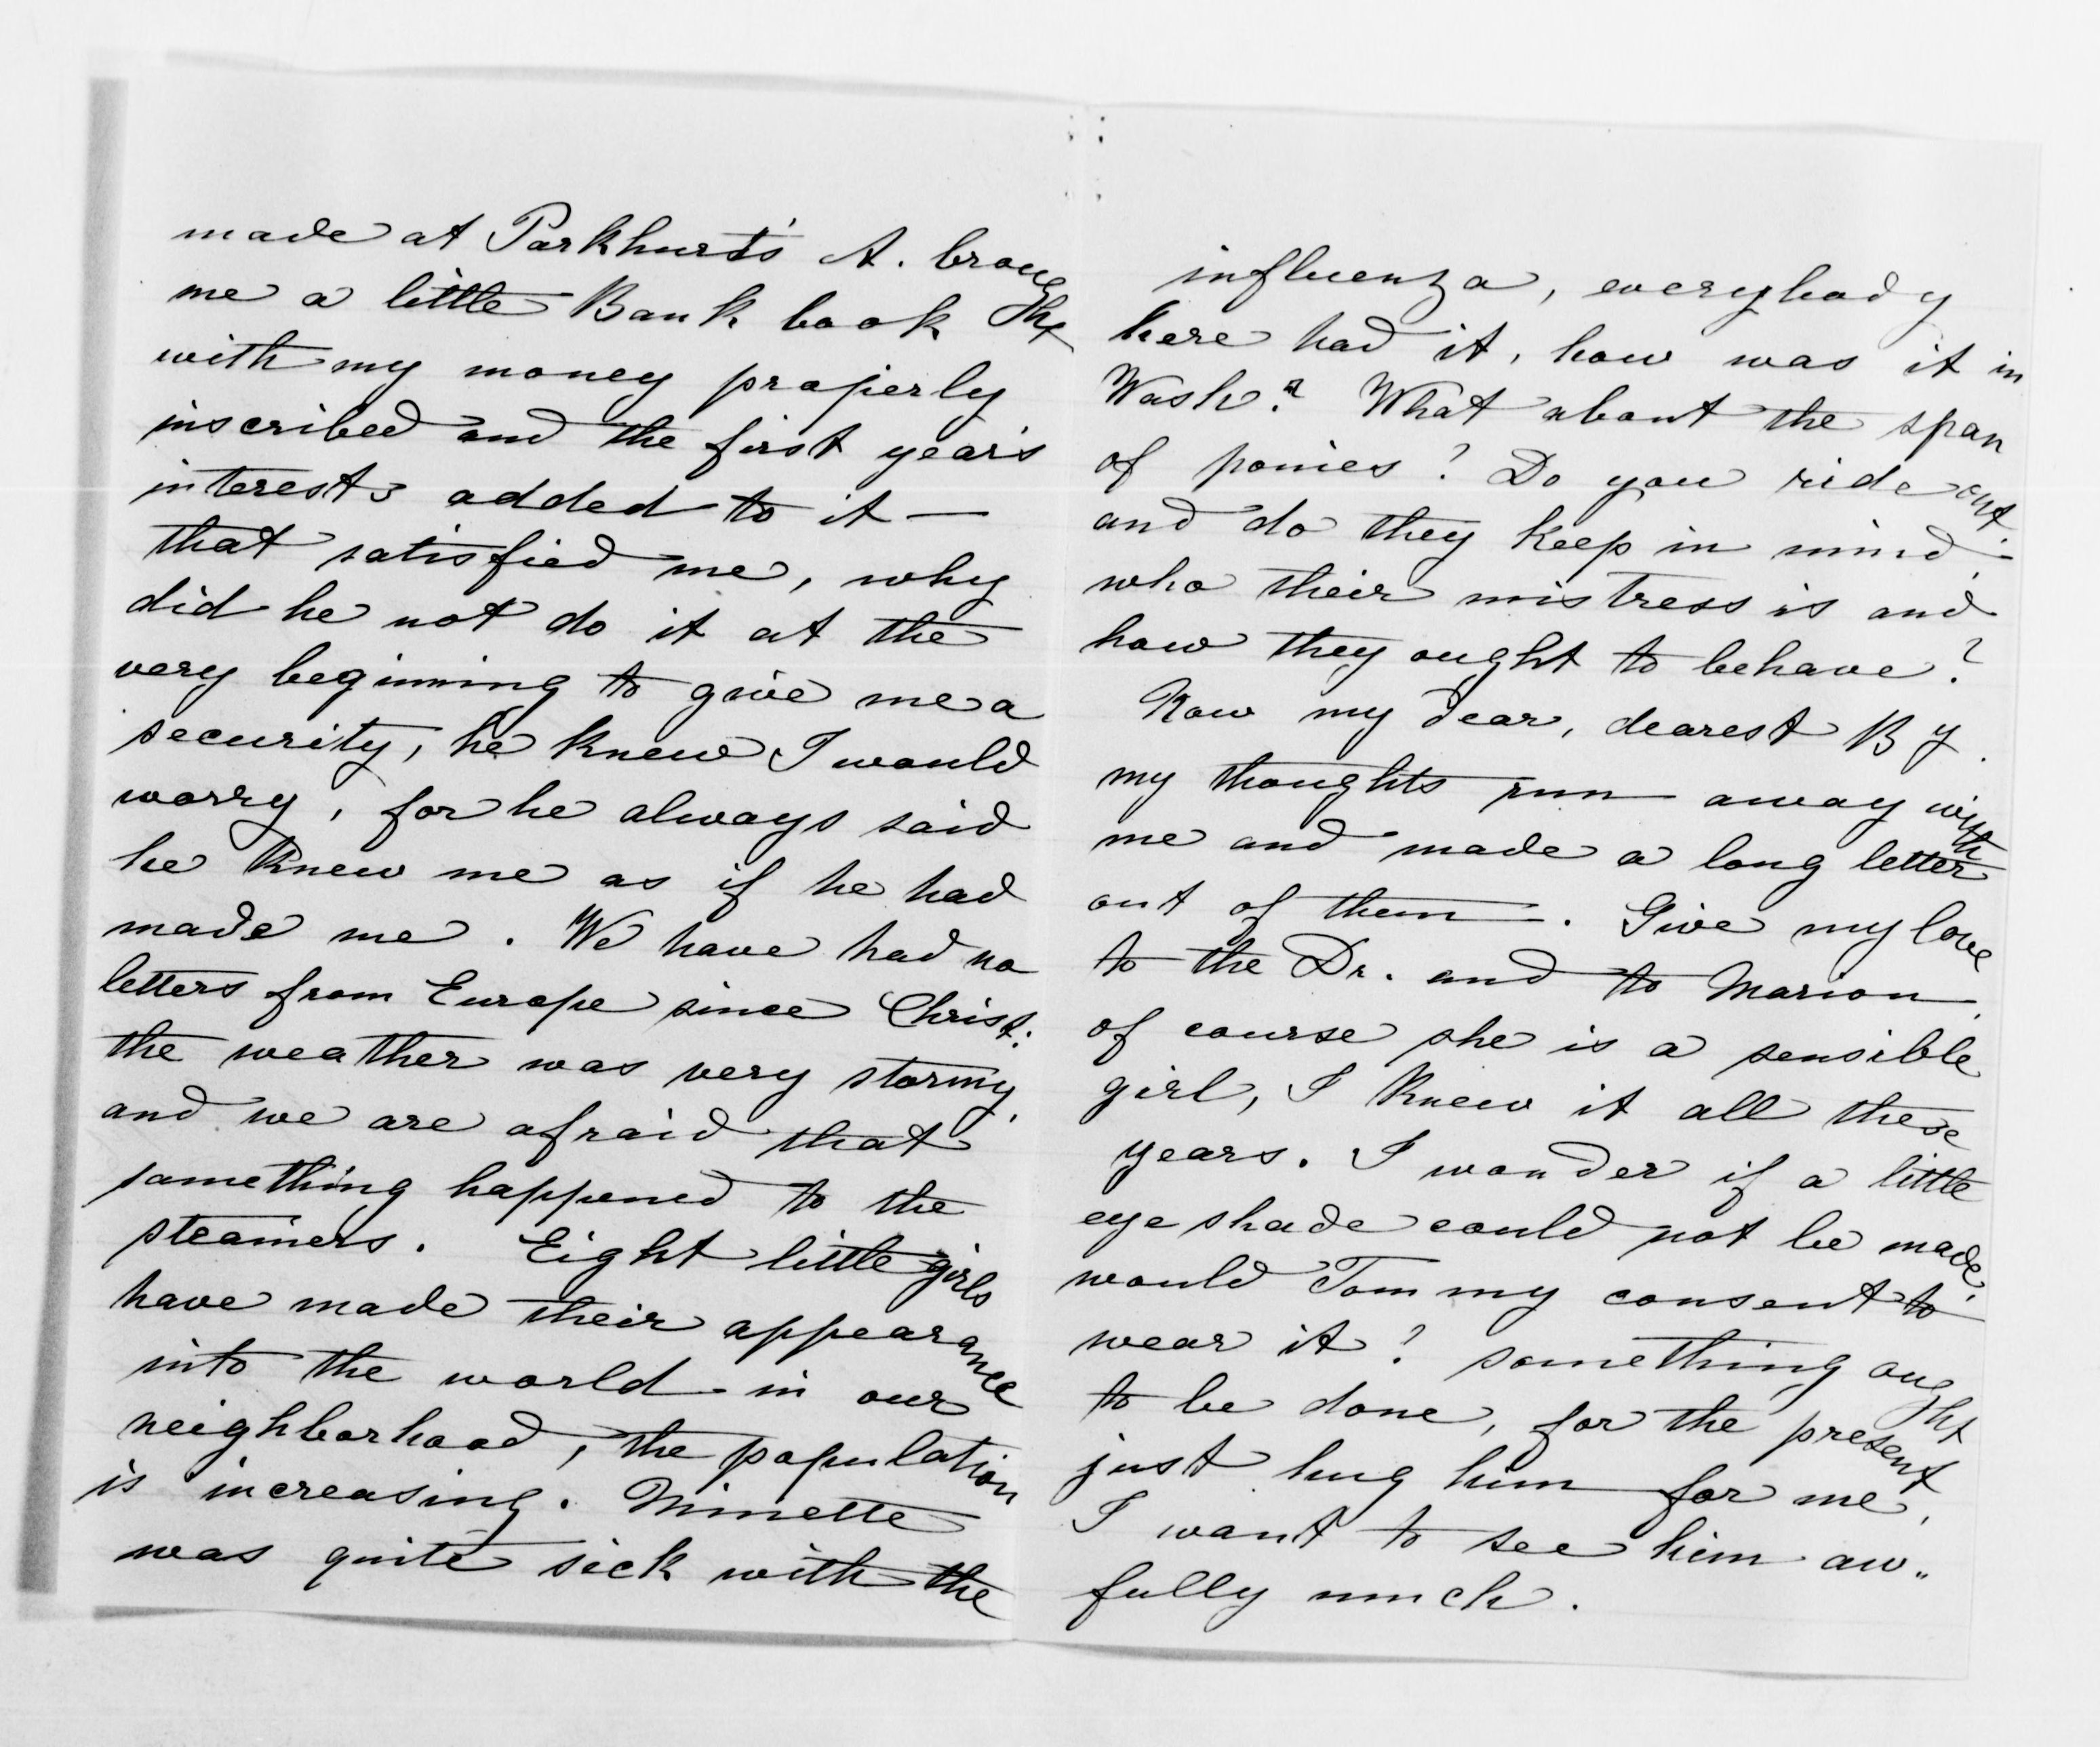 made at Parkhurst's A. brought
me a little Bank book
with my money properly
inscribed and the first year's
interests added to it —
that satisfied me, why
did he not do it at the
very beginning to give me a
security, he knew I would
worry, for he always said
he knew me as if he had
made me. We have had no
letters from Europe since Christ:
the weather was very stormy,
and we are afraid that
something happened to the
steamers. Eight little girls
have made their appearance
into the world in our
neighborhood, the population
is increasing. Minette
was quite sick with the
influenza, everybody
here had it, how was it in
Wash? What about the span
of ponies? Do you ride out.
and do they keep in mind
who their mistress is and
how they ought to behave?
Now my dear, dearest B y.
my thoughts run away with
me and made a long letter
out of them. Give my love
to the Dr. and to Marion,
of course she is a sensible
girl, I knew it all these
years. I wonder if a little
eye shade could not be made,
would Tommy consent to
wear it? something ought
to be done, for the present
just hug him for me,
I want to see him aw„
fully much.